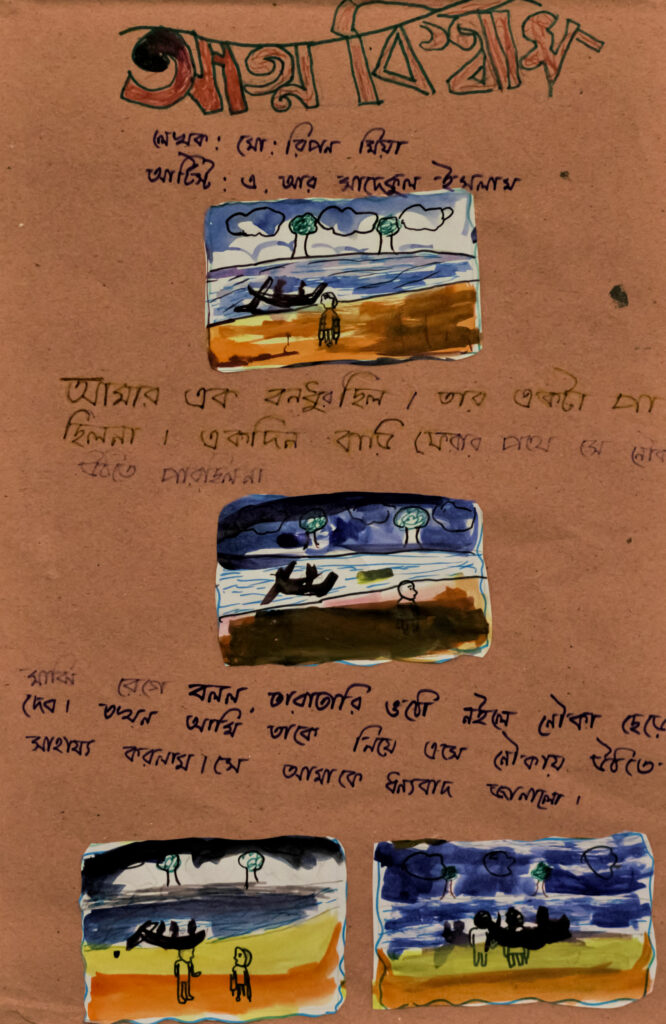 আত্ম বিশ্বাস
লেখক: মো: রিপন মিয়া
আর্টিস্ট: এ. আর সাদেকুল ইসলাম
আমার এক বনধুর ছিল। তার একটা পা
ছিলনা। একদিন বারি ফেরার পথে সে নৌকা
উঠতে পারছিলনা
মাঝি রেগে বলল, তারাতারি ওঠো নইলে নৌকা ছেড়ে
দেব। তখন আমি তাকে নিয়ে এসে নৌকায় উঠতে
সাহায্য করলাম। সে আমাকে ধন্যবাদ জানালো।